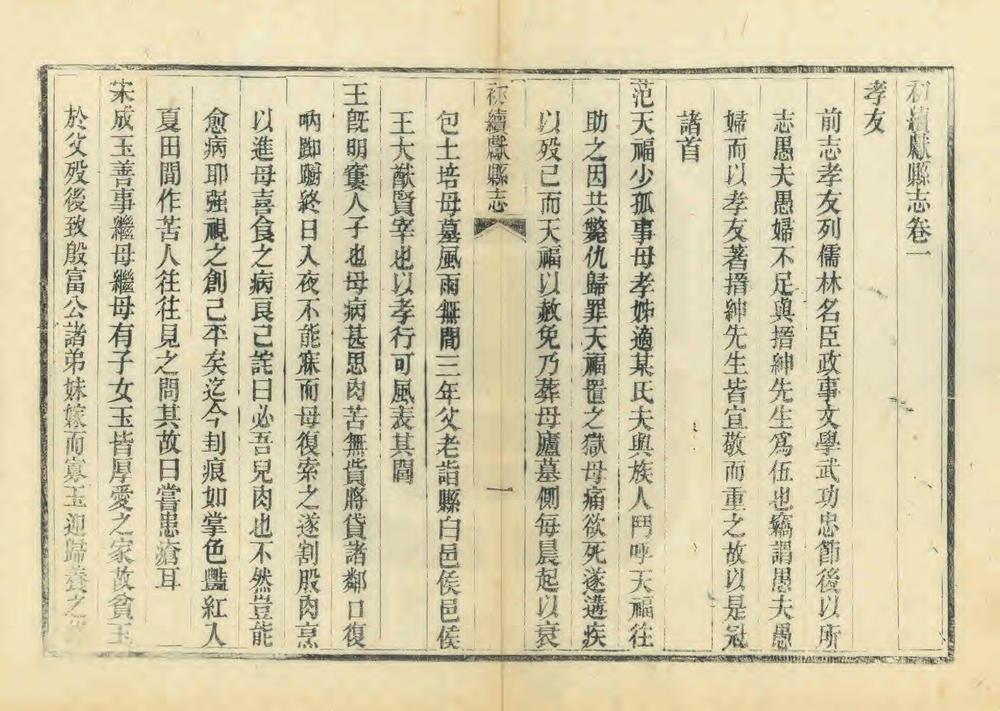 初續獻縣志卷一
孝友
前志孝友列儒林名臣政事文學武功忠節後以所
志愚夫愚婦不足與搢紳先生爲伍也竊謂愚夫愚
婦而以孝友著搢紳先生皆宜敬而重之故以是冠
諸首
范天福少孤事母孝姊適某氏夫與族人鬥呼天福往
助之因共斃仇歸罪天福置之獄母痛欲死遂遘疾
以歿已而天福以赦免乃葬母廬墓側每晨起以衰
初續獻縣志
一
包土培母墓風雨無間三年父老詣縣白邑侯邑侯
王大猷賢宰也以孝行可風表其閭
王旣明窶人子也母病甚思肉苦無貲將貸諸鄰口復
吶踟躕終日入夜不能寐而母復索之遂割股肉烹
以進母喜食之病良已詫曰必吾兒肉也不然豈能
愈病耶强視之創已平矣迄今刲痕如掌色豔紅人
夏田間作苦人往往見之問其故曰嘗患瘡耳
宋成玉善事繼母繼母有子女玉皆厚愛之家故貧玉
於父歿後致殷富公諸弟妹嫁而寡玉迎歸養之